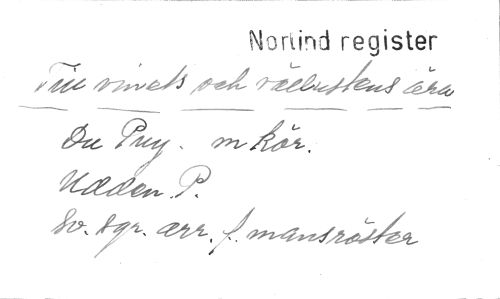 Norlind register
Till vinets och vällustens ära
Du Puy. m kör.
Udden. P.
Sv. sgr. arr. f. mansröster